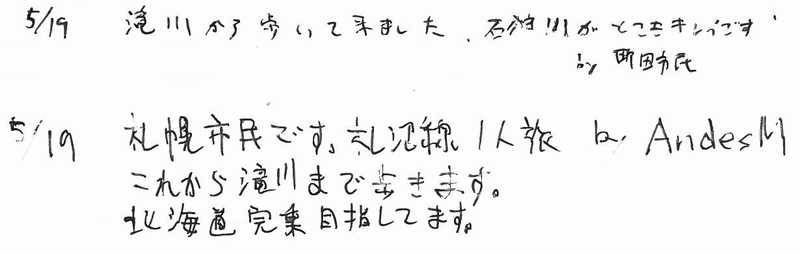 5/19 滝川から歩いて来ました。石狩川がとてもキレイです
by 町田市民
5/19 札幌市民です。札沼線1人旅 by AndesM
これから滝川まで歩きます。
北海道完乗目指してます。